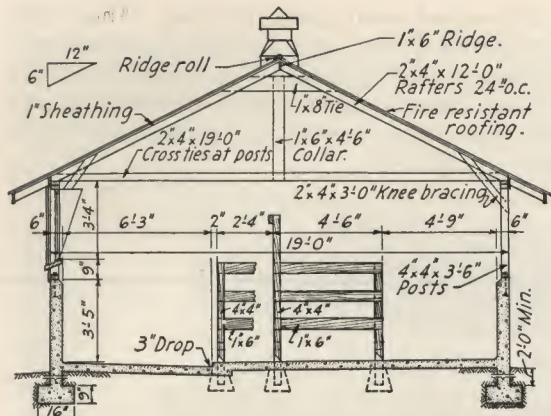 12"
6"
Ridge roll
1"x6" Ridge.
2"x4"x12'-0"
Rafters 24"o.c.
1"Sheathing
1"x8"Tie
Fire resistant
roofing.
2"x4"x19'-0"
Crossties at posts
1"x6"x4'-6"
Collar.
2"x4"x3'-0" Knee bracing
3'-4"
6"
6'-3"
2"
2'-4"
4'-6"
4'-9"
6"
19'-0"
9"
4"x4"x3'-6"
Posts
3'-5"
4"x4"
4"x4"
1"x6"
1"x6"
3"Drop
2'-0"Min.
9"
16"